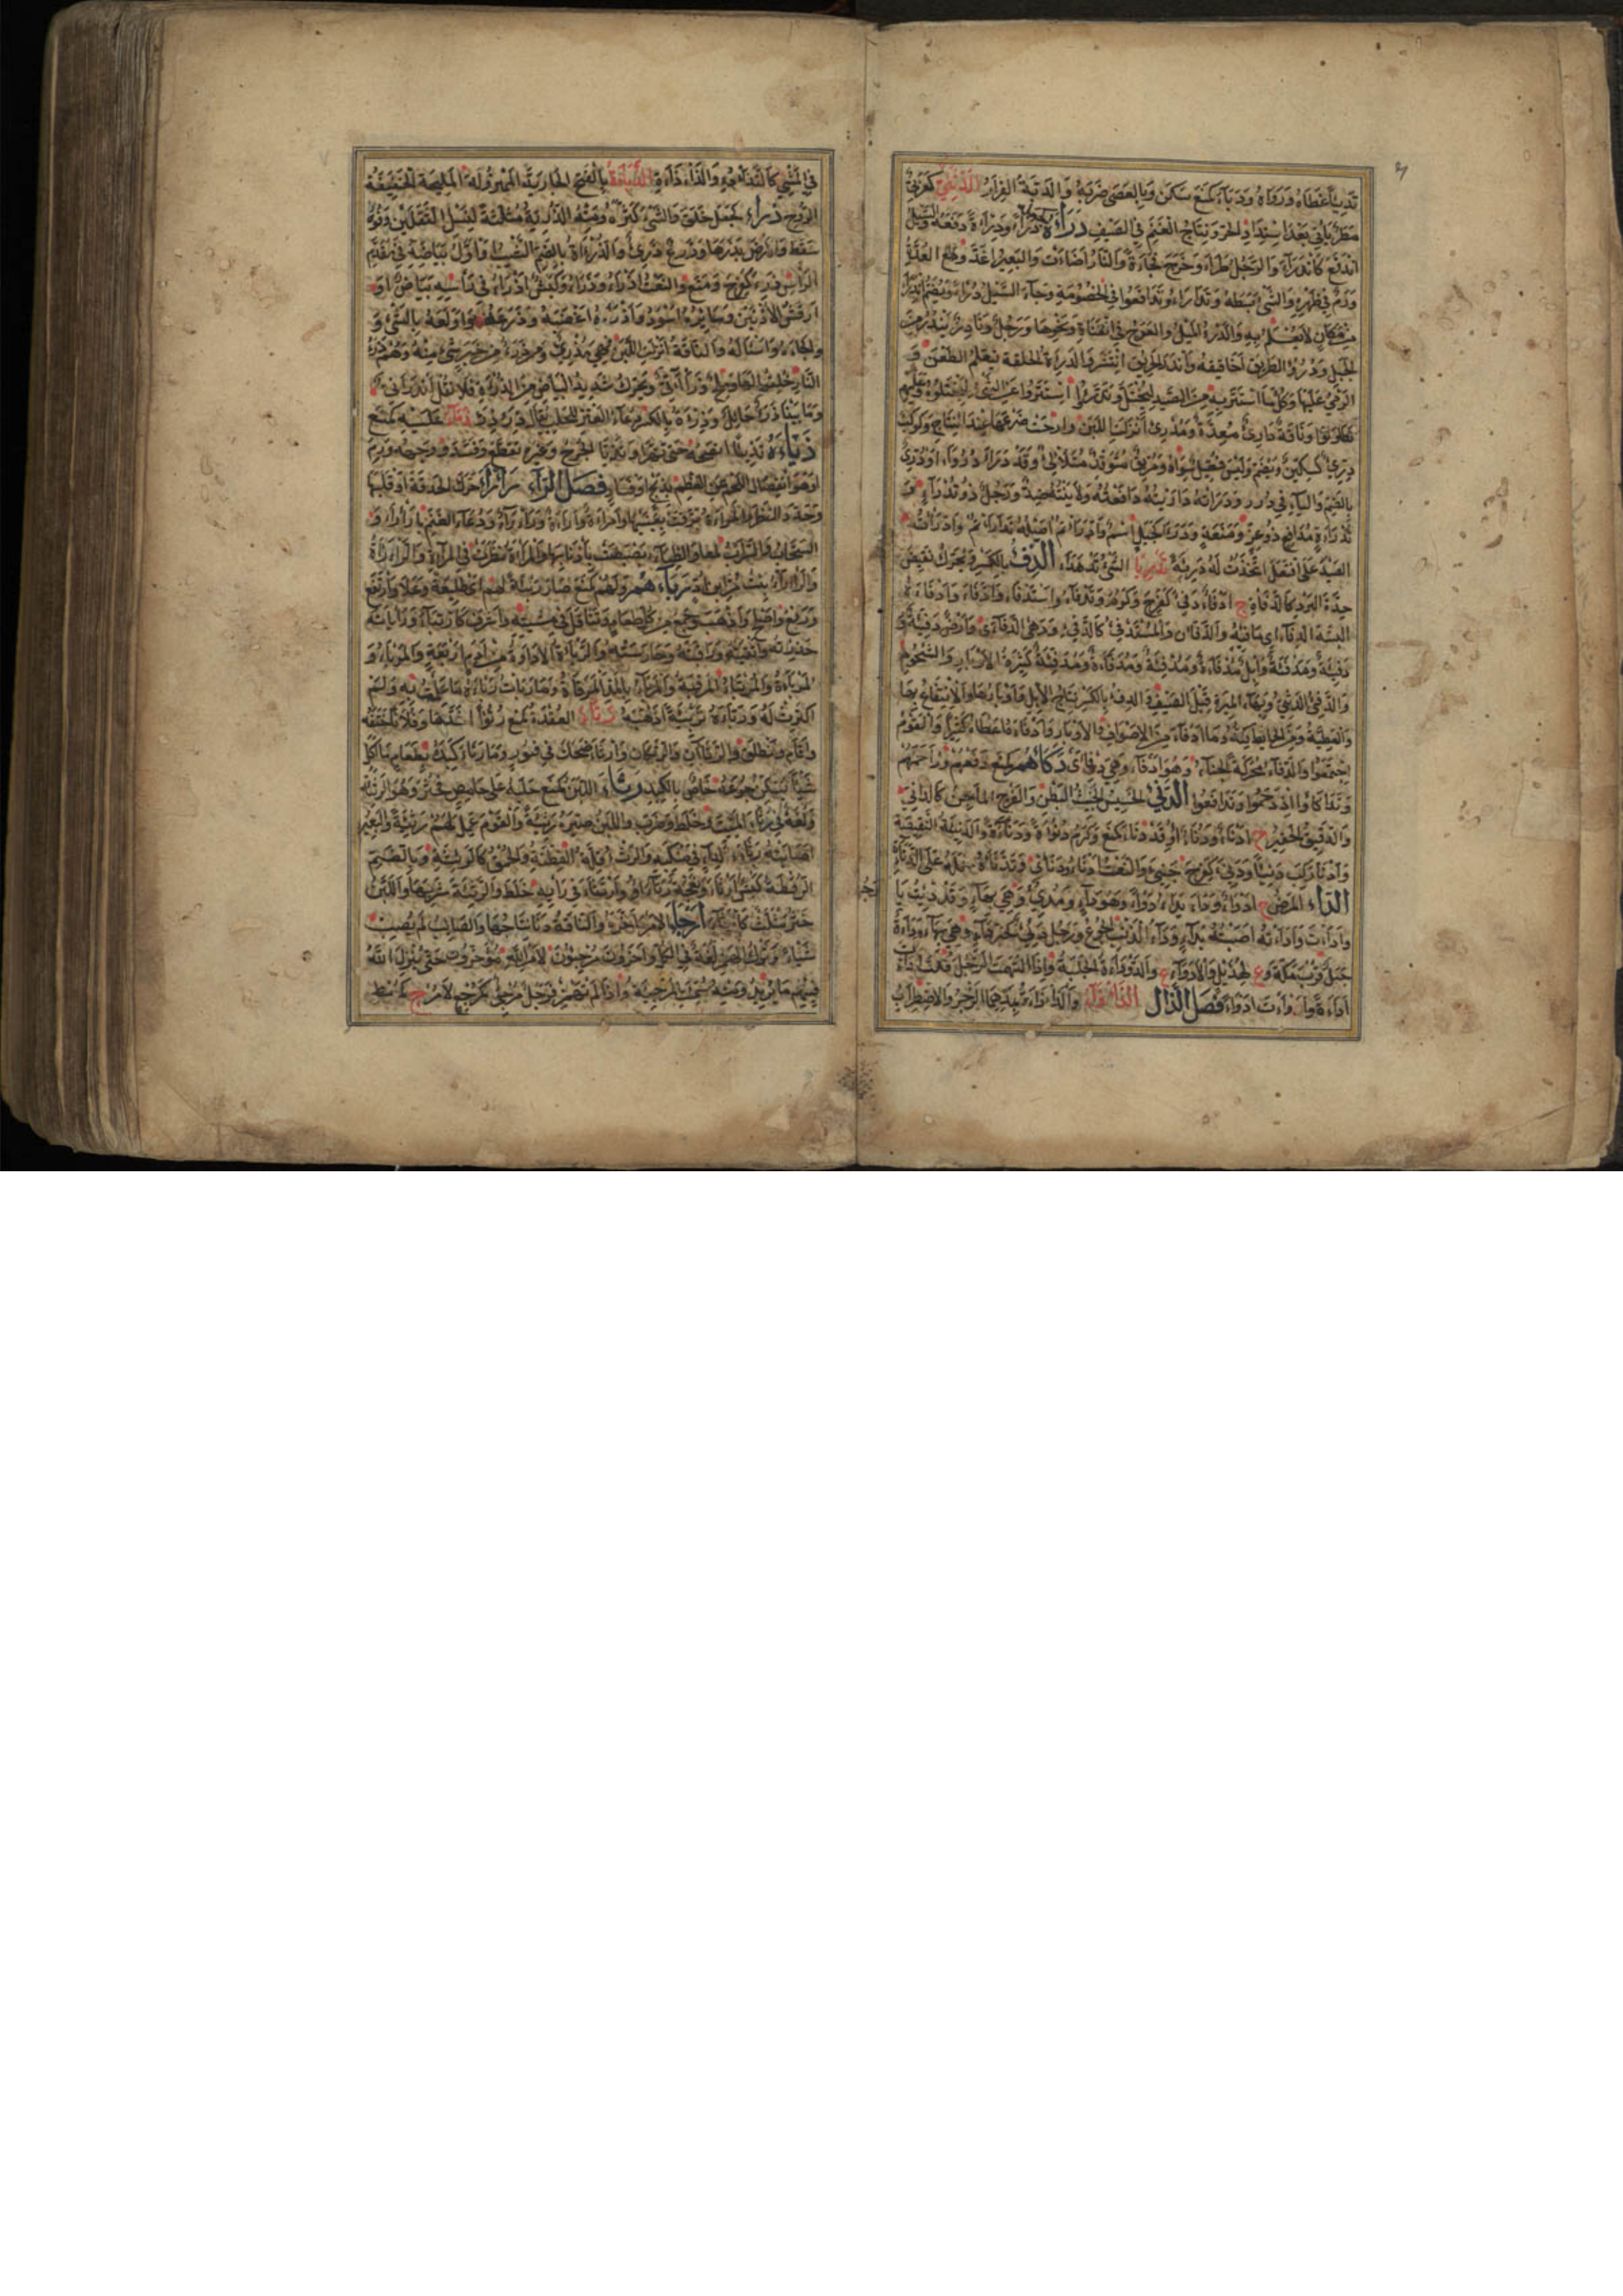 تدبيئا غطاه ودرواه ودبأ كمنع سكن وبالعصى ضربه والدبأة الفرار الدثئي كعربي
مطر يأتي بعد اشتداد الحر ونتاج الغنم في الصيف درأه كجعله درءا ودرأة دفعه والسيل
اندفع كاندرأ والرجل طرأ وخرج فجاءة والنار اضاءت والبعير اغد ومع الغدة
ورم في ظهره والشئ بسطه وتدارءوا تدافعوا في الخصومة وجاء السيل درءا ويضم اندرأ
من مكان لا يعلم به والدرء الميل والعوج في القناة ونحوها ورجل ونادر يندر من
الجبل ودروء الطريق اخاقيقه واندرأ الحريق انتشر والدريئة الحلقة يتعلم الطعن و
الرمي عليها وكل ما استتر به من الصيد ليختل وتدرءوا استتروا عن الشئ ليختلوه وعليهم
تطاولوا وناقة دارئ مغدة ومدرئ انزلت اللبن وارخت ضرعها عند النتاج وكوكب
درئ كسكين ويضم وليس فعيل سواه ومريق متوقد متلألئ وقد درأ دروءا ودرئ
بالضم والياء في درر ودرأته دارأته دافعته ولاينته ضد ورجل ذو تدرأ و
تدرأة مدافع ذو عز ومنعة ودرء كجبل اسم وادارأتم اصله تدارأتم وادرأت
الصيد على افتعل اتخذت له دريئة تدريأ الشئ تدهدأ الدفء بالكسر ويحرك نقيض
حدة البرد كالدفاءة ج ادفاء دفئ كفرح وكرم وتدفأ واستدفأ وادفأ وادفأه
البسه الدفاء اي ما يدفئه والدفآن والمستدفئ كالدفئ وهي الدفآى وارض دفيئة
دفئة ومدفئة وابل مدفأة ومدفئة ومدفأة ومدفئة كثيرة الاوبار والشحوم
والدفئي الدثئي وبهاء الميرة قبل الصيف والدفء بالكسر نتاج الابل واوبارها والانتفاع بها
والعطية ومن الحائط كنه وما ادفأ من الاصواف والاوبار وادفأه اعطاه كثيرا والقوم
اجتمعوا والدفأ محركة الجنأ وهو ادفأ وهي دفأى دكأهم كمنع دفعهم وزاحمهم
وتداكأوا ازدحموا وتدافعوا الدنئ الخسيس الخبيث البطن والفرج الماجن كالدانئ
والدقيق الحقير ج ادناء ودنآء وقد دنأ كمنع وكرم دنوءة ودناءة والدنيئة النقيصة
وادنأ ركب دنيئا ودنئ كفرح جنئ والنعت ادنأ ودنآء وتدنأه حمله على الدناءة
الداء المرض ج ادواء داء يداء دوءا وداء وهو داء ومدئ وهي بهاء وقد دئت يا
وادأت واداءته اصبته بداء وداء الذئب الجوع ورجل دئ كخير داء وهي بهاء وداءة
جبل قرب مكة وع لهذيل والادواء ع والدوداءة الجلبة واذا اتهمت الرجل قلت ادأت
اداءة وادوأت ادواء فصل الذال الذأذاء والذأذاءة بمدهما الزجر والاضطراب
في المشي كالتذأذؤ والذأذأة الذبأة بالفتح الجارية المهزولة المليحة الخفيفة
الروح ذرأ كجعل خلق والشئ كثره ومنه الذرية مثلثة لنسل الثقلين وفوه
سقط والارض بذرها وزرع ذرئ والذرأة بالضم الشيب واول بياضه في مقدم
الرأس ذرئ كفرح ومنع والنعت اذرأ وذرآء وكبش اذرأ في رأسه بياض او
ارقش الاذنين وسايره اسود واذرأه اغضبه وذرعه واولعه بالشئ و
والجأه واساله والناقة انزلت اللبن فهي مذرئ وذرء من خبر شئ منه وهم ذرء
النار خلقوا لها وملح ذرآني ويحرك شديد البياض من الذرأة ولا تقل انذراني
وما بيننا ذرء حايل وذرءة بالكسر دعاء العنز للحلب يقال ذرء ذرء ذمأ عليه كمنع
ذيأه تذييئا انضجه حتى تهرأ وتذيأ الجرح وغيره تقطع وفسد ووجهه ورم
او هو انفصال اللحم عن العظم بذبح او فساد فصل الراء رأرأ حرك الحدقة او قلبها
وحدد النظر والمرأة برقت بعينيها وامرأة رأرأة ورأراء ورأرأ دعاء الغنم بارأر و
السحاب والسراب لمعا والظباء بصبصت باذنابها والمرأة نظرت في المرآة والرأراءة
والرأراء بنت مر بن اد ربأهم ولهم كمنع صار ربيئة لهم اي طليعة وعلا وارتفع
ورفع واصلح واذهب وجمع من كل طعام وتثاقل في مشيته واشرف كارتبأ ورابأته
حذرته واتقيته وراقبته وحارسته والربأة الاداوة من ادم اربعة والمربأ و
المربأة والمرتبأ المرقبة والمرباء بالمد المرقاة وما ربأت ربأه ما علمت به ولم
اكترث له ورتأ العقدة كمنع رتوءا شدها وفلانا خنقه
واقام وانطلق والرتآن والرتكان وارتأ ضحك في فتور وما رتأ كبده بطعام ما اكل
شيئا يسكن جوعه خاص بالكبد رثأ اللبن كمنع حلبه على حامض فخثر وهو الرثيئة
ولغة في رثى الميت وخلط وضرب واللبن صيره رثيئة والقوم عمل لهم رثيئة والبعير
اصابته رثأة لداء في منكبه والرثء قلة الفطنة والحمق كالرثيئة وبالضم
الرقطة كبش ارثأ ونعجة رثآء وارتثأ في رأيه خلط والرثيئة شربها واللبن
خثر كأرثأ ارجأ الامر اخره والناقة دنا نتاجها والصائد لم يصب
شيئا وترك الهمز لغة في الكل وآخرون مرجئون لامر الله مؤخرون حتى ينزل الله
فيهم ما يريد ومنه سميت المرجئة واذا لم تهمز فرجل مرجي كمرجع لا مرج كمعط